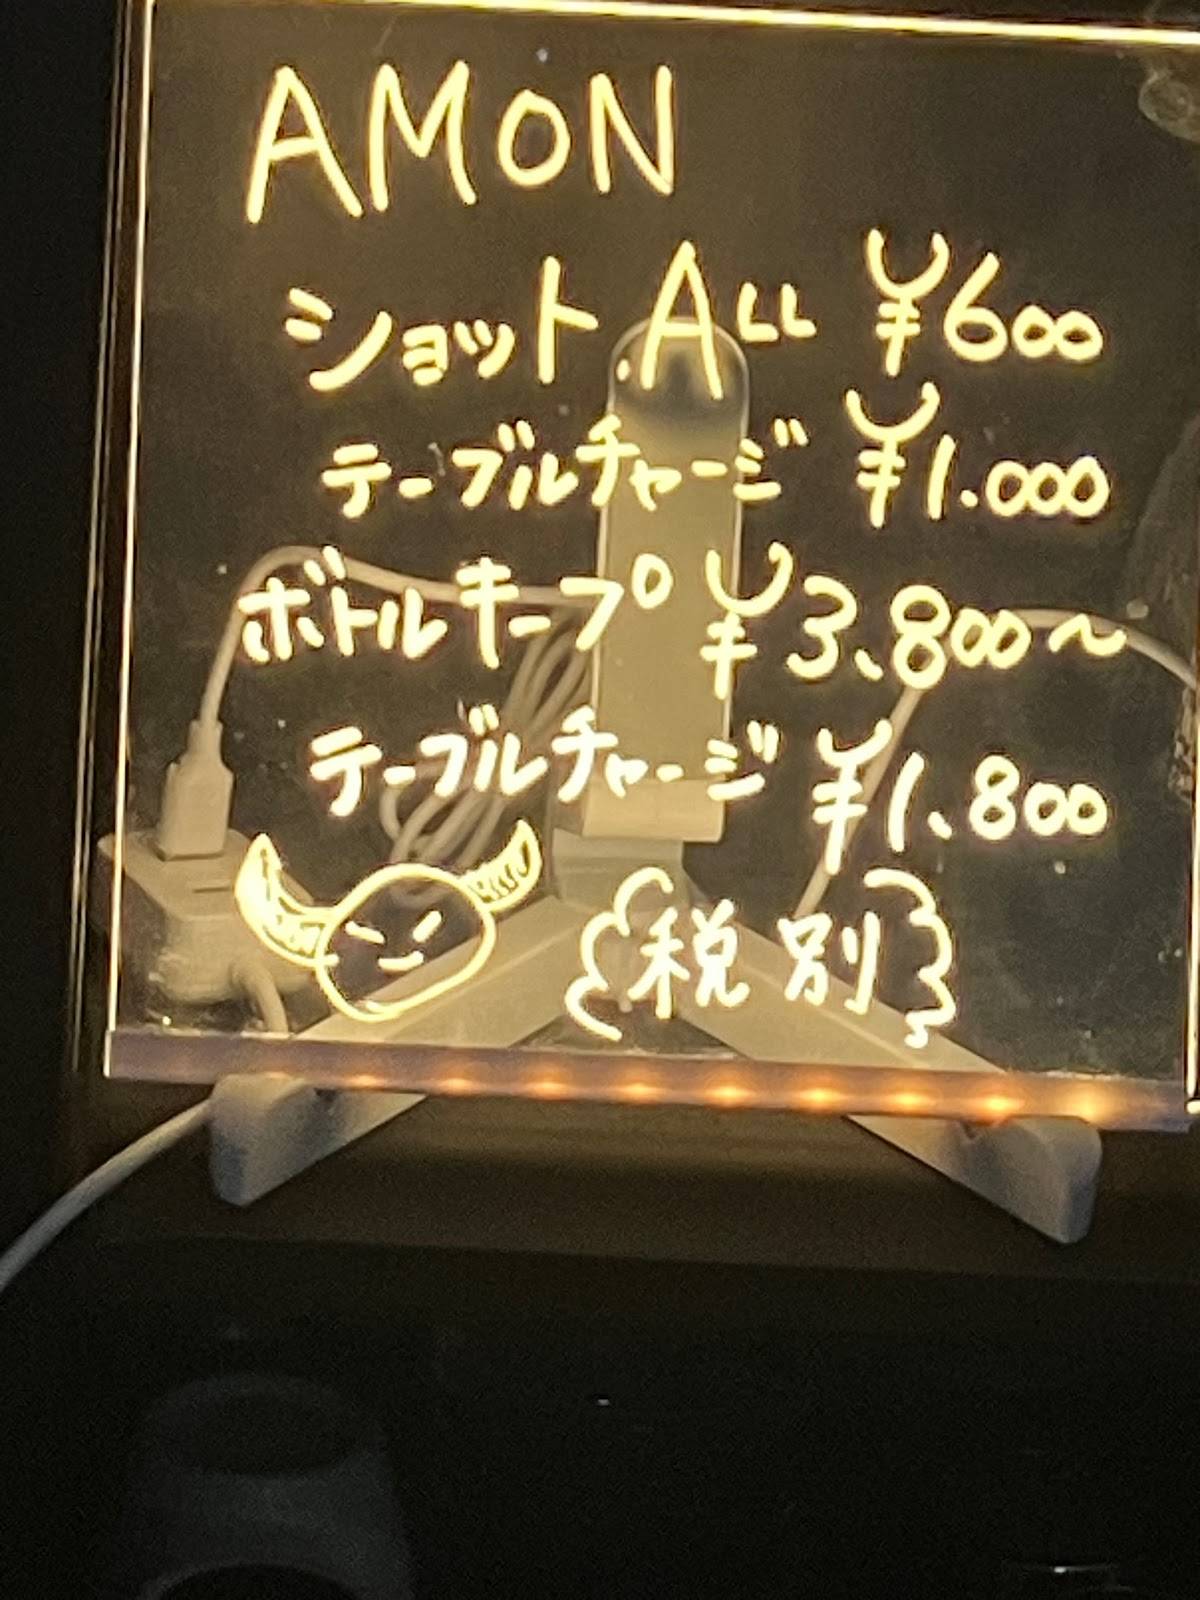 AMON
ショット.ALL ¥600
テーブルチャージ ¥1.000
ボトルキープ ¥3、800～
テーブルチャージ ¥1、800
{税別}